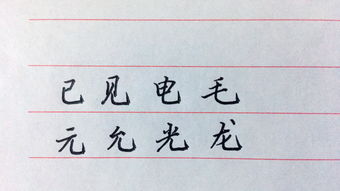 已见电毛
元允光龙